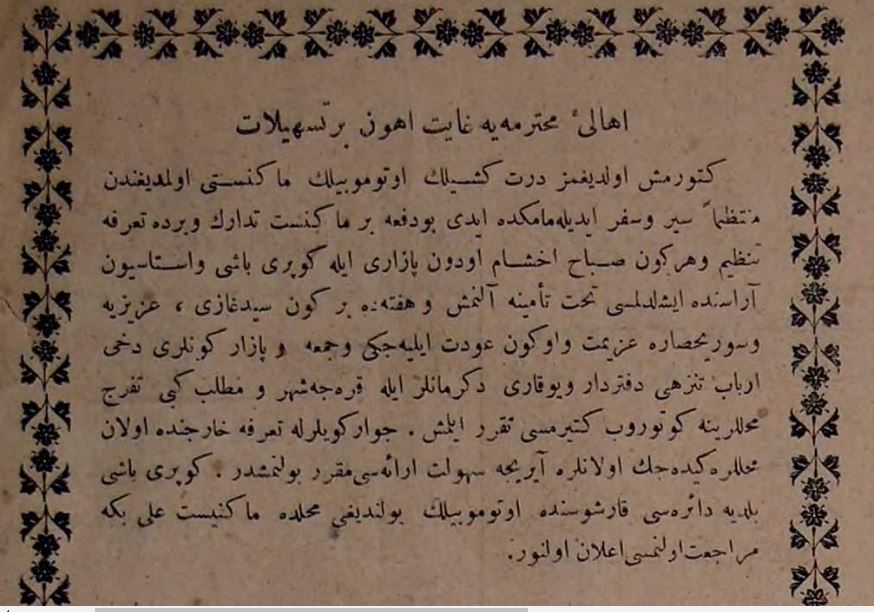 اهالیٔ محترمه‌یه غایت اهون بر تسهیلات
كتورمش اولدیغمز درت كشیلك اوتوموبیلك ماكنستی اولمدیغندن
منتظماً سیر وسفر ایدیله‌مامكده ایدی بودفعه بر ماكنست تدارك وبرده تعرفه
تنظیم وهركون صباح اخشام اودون پازاری ایله كوپری باشی واستاسیون
آراسنده ایشلدلمسی تحت تأمینه آلنمش وهفته‌ده بر كون سیدغازی ، عزیزیه
وسوریحصاره عزیمت واوكون عودت ایلیه‌جكی وجمعه و پازار كونلری دخی
ارباب تنزهی دفتردار ویوقاری دكرمانلر ایله قره‌جه‌شهر و مطلب كبی تفرج
محللرینه كوتوروب كتیرمسی تقرر ایلمش . جوار كویلرله تعرفه خارجنده اولان
محللره كیده‌جك اولانلره آیریجه سهولت ارائه‌سی مقرر بولنمشدر . كوپری باشی
بلدیه دائره‌سی قارشوسنده اوتوموبیلك بولندیغی محلده ماكنیست علی بكه
مراجعت اولنمسی اعلان اولنور.